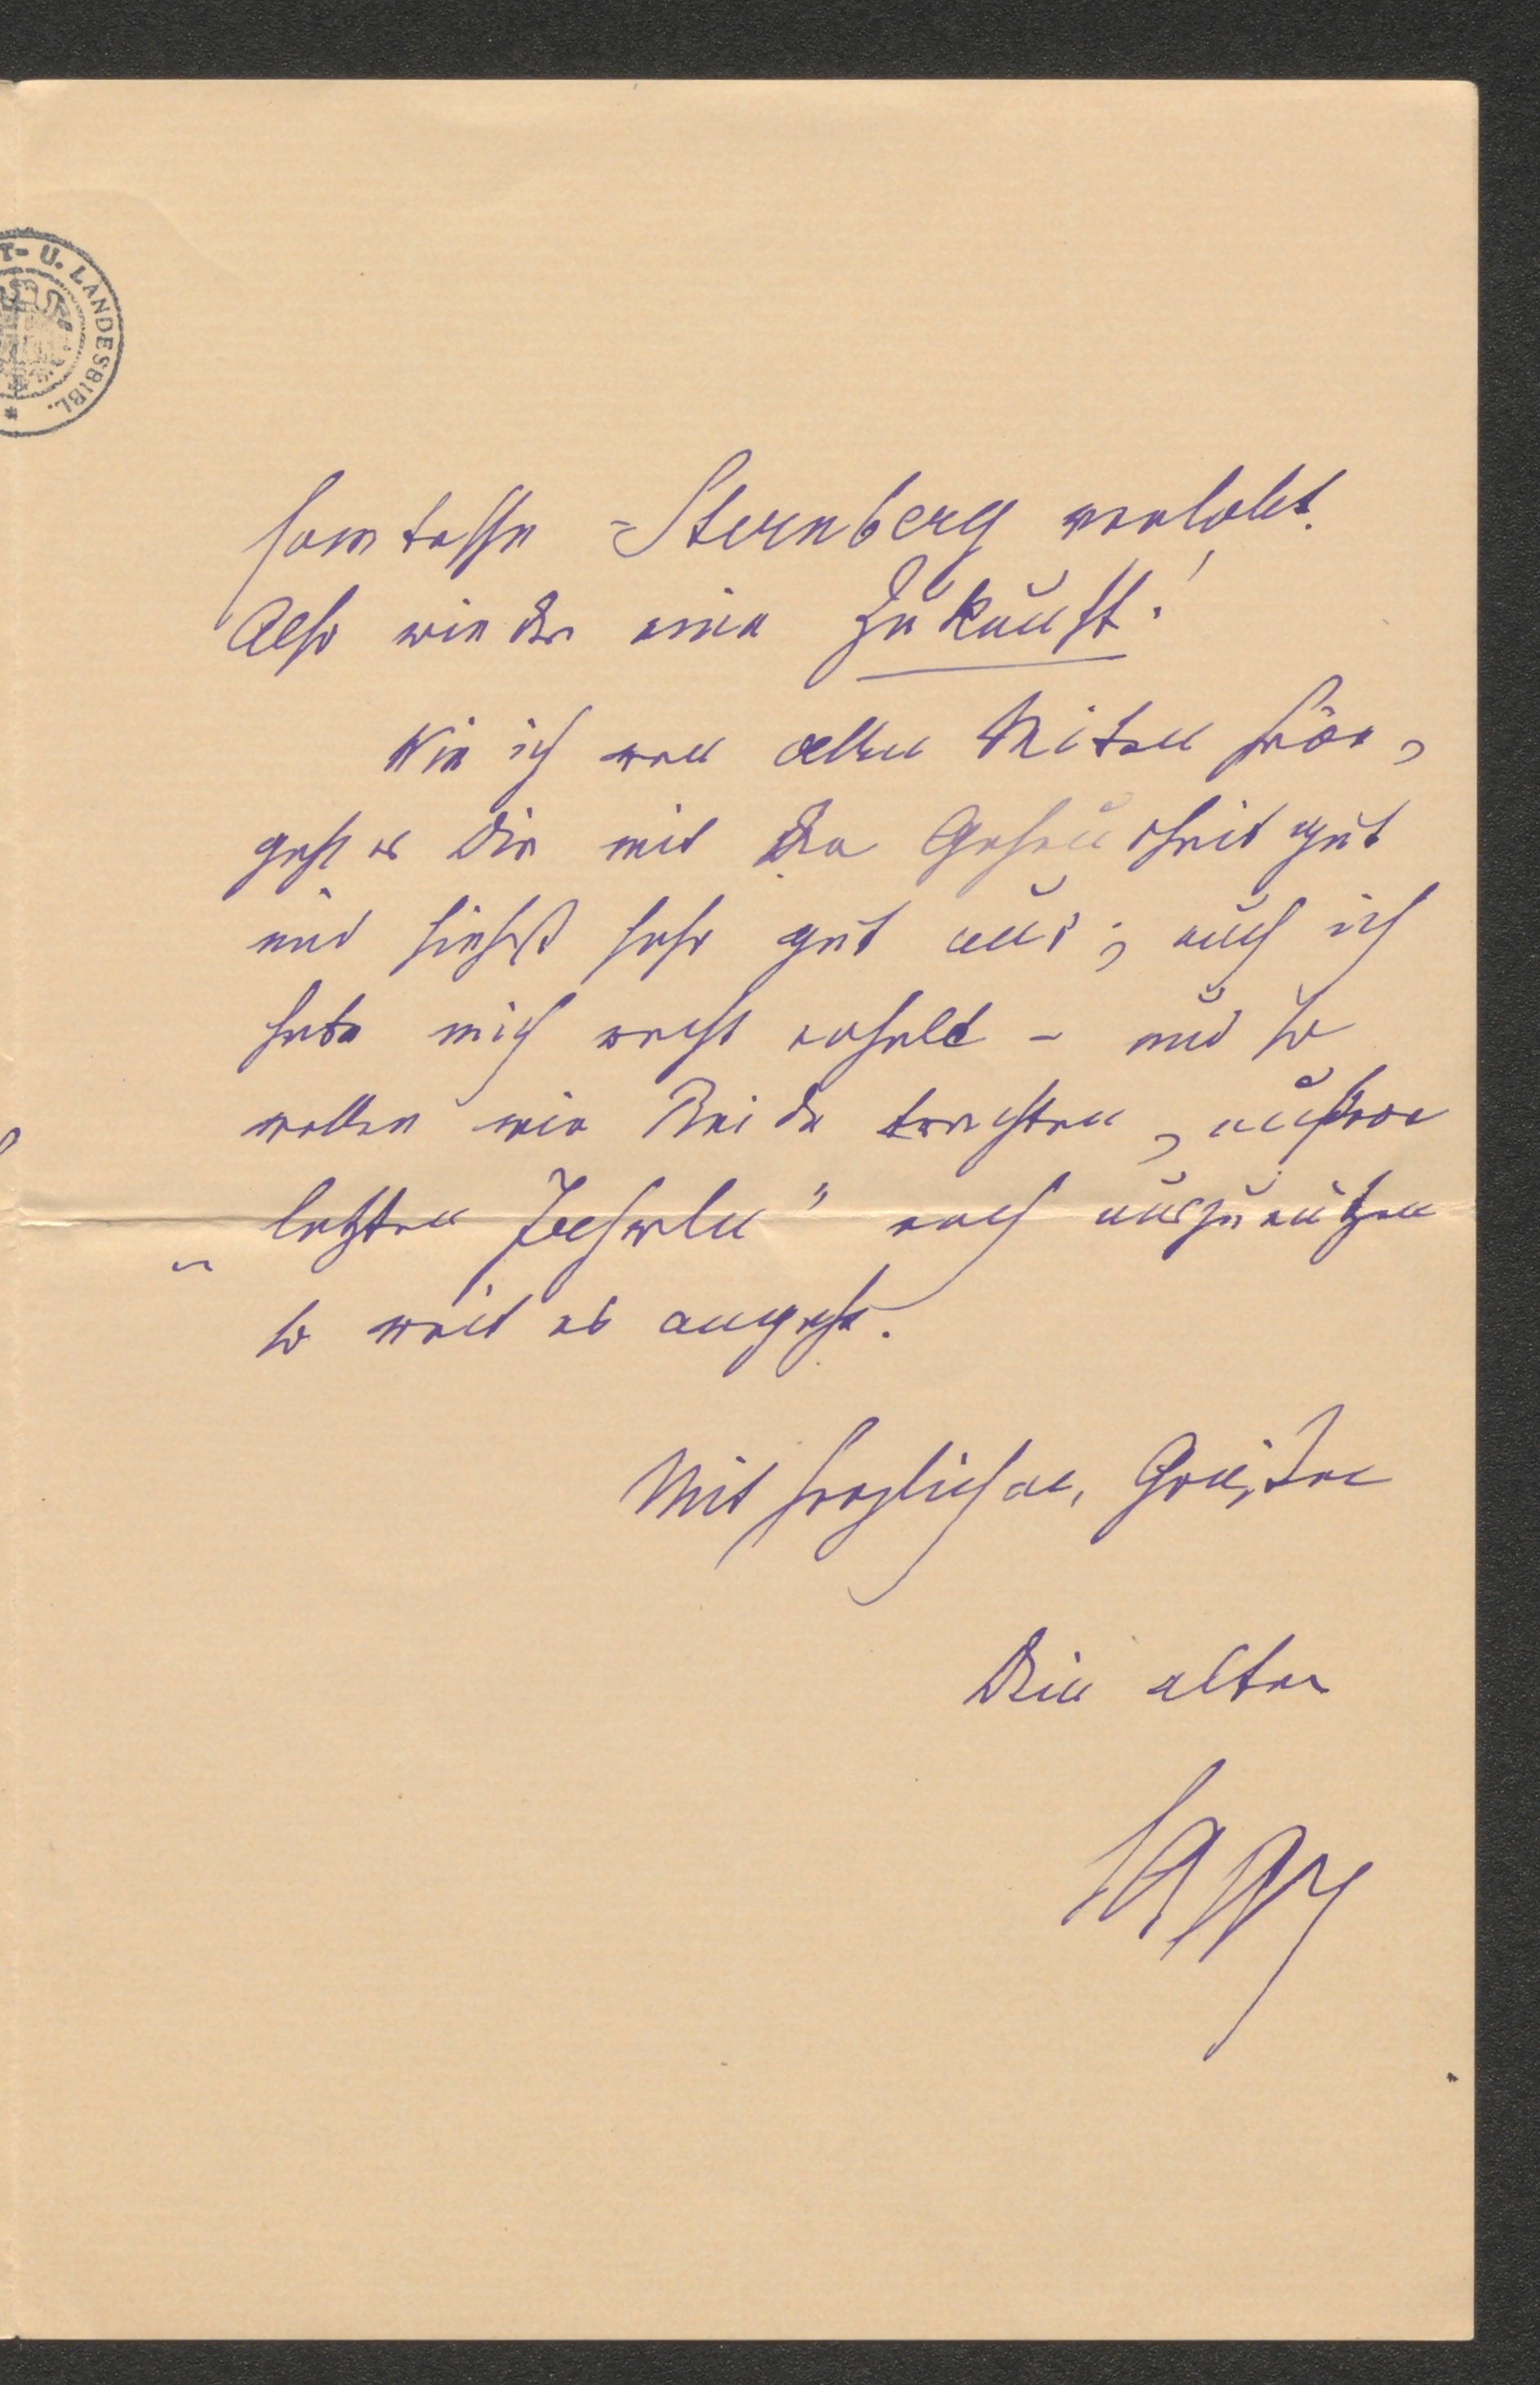 T- U. LANDESBIBL. *
Comtesse -Sternberg verlobt.
Also wieder eine Zukunft!
Wie ich von allen Seiten höre,
geht es Dir mit der Gesundheit gut
und siehst sehr gut aus; auch ich
habe mich recht erholt - und so
wollen wir Beide trachten, unsere
„letzten Jahrln" noch auszunützen
so weit es angeht.
Mit herzlichen Grüßen
Dein alter